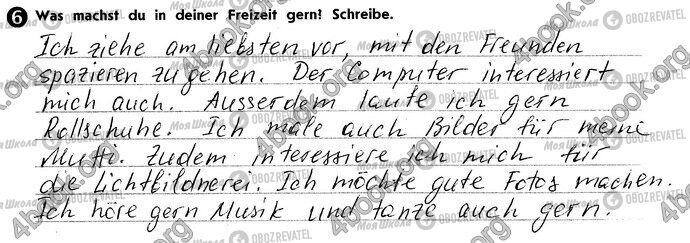 6 Was machst du in deiner Freizeit gern? Schreibe.
Ich ziehe am liebsten vor, mit den Freunden
spazieren zu gehen. Der Computer interessiert
mich auch. Ausserdem laufe ich gern
Rollschuhe. Ich male auch Bilder für meine
Mutti. Zudem interessiere ich mich für
die Lichtbildnerei. Ich möchte gute Fotos machen.
Ich höre gern Musik und tanze auch gern.